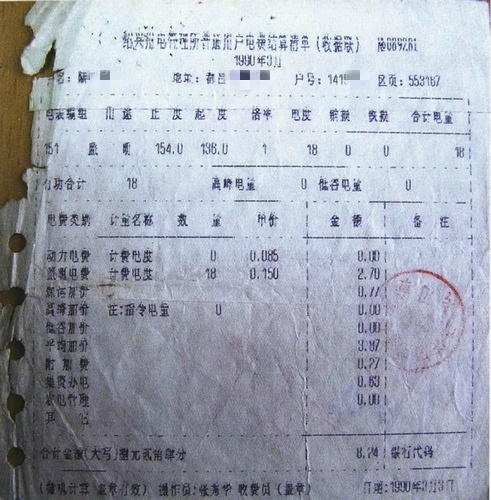 绍兴市电管理所普通用户电费结算清单(收据联) №089281
1990年3月
名: 陈 地址: 都昌 户号: 1415 区页: 553167
电表编组 用途 止度 起度 倍率 电度 解损 收损 合计电量
151 照明 154.0 136.0 1 18 0 0 18
有功合计 18 高峰电量 0 低谷电量 0
电费类别 计量名称 数量 单价 金额 备注
动力电费 计费电度 0 0.085 0.00
照明电费 计费电度 18 0.150 2.70
加价 0.77
高峰加价 注:指令电量 0 0.00
低谷加价 0.00
平均加价 3.87
附加费 0.27
集资办电 0.63
电管理 0.00
其它
合计金额(大写)捌元贰角肆分 8.24 银行代码
(微机计算 盖章有效) 操作员: 收费员(盖章) 日期:1990年3月3日